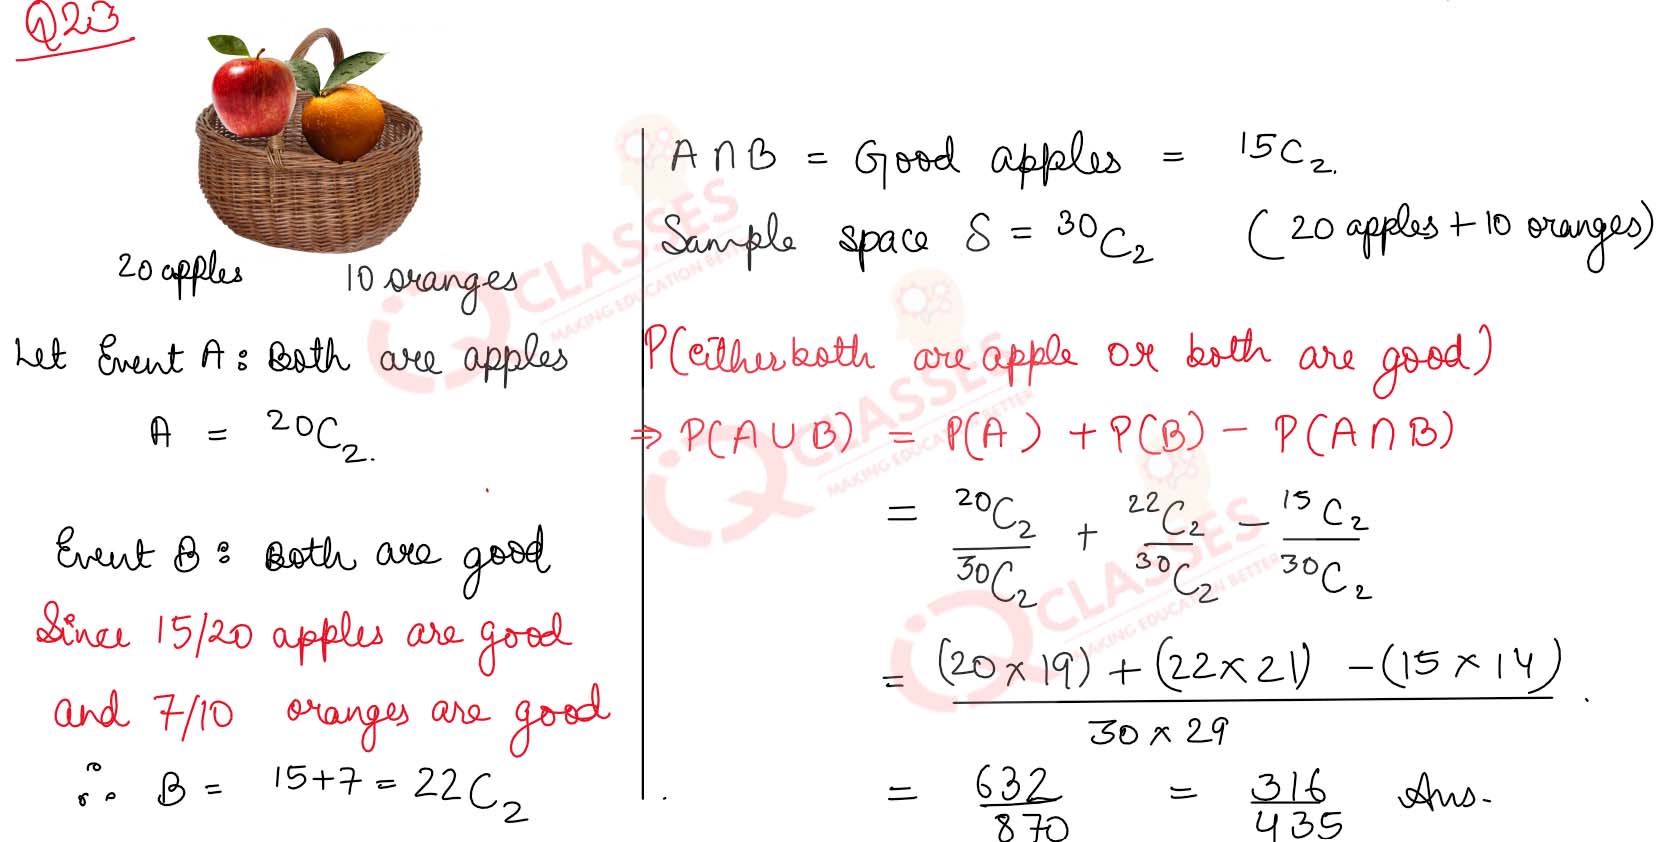 Q23
20 apples 10 oranges
Let Event A: Both are apples
A = 20C2.
Event B: Both are good
Since 15/20 apples are good
and 7/10 oranges are good
∴ B = 15+7 = 22C2
A∩B = Good apples = 15C2.
Sample space S = 30C2 (20 apples + 10 oranges)
P(either both are apple or both are good)
⇒ P(A∪B) = P(A) + P(B) - P(A∩B)
= 20C2/30C2 + 22C2/30C2 - 15C2/30C2
= (20×19) + (22×21) - (15×14) / 30×29.
= 632/870 = 316/435 Ans.
CLASSES
MAKING EDUCATION BETTER
CLASSES
MAKING EDUCATION BETTER
CLASSES
MAKING EDUCATION BETTER